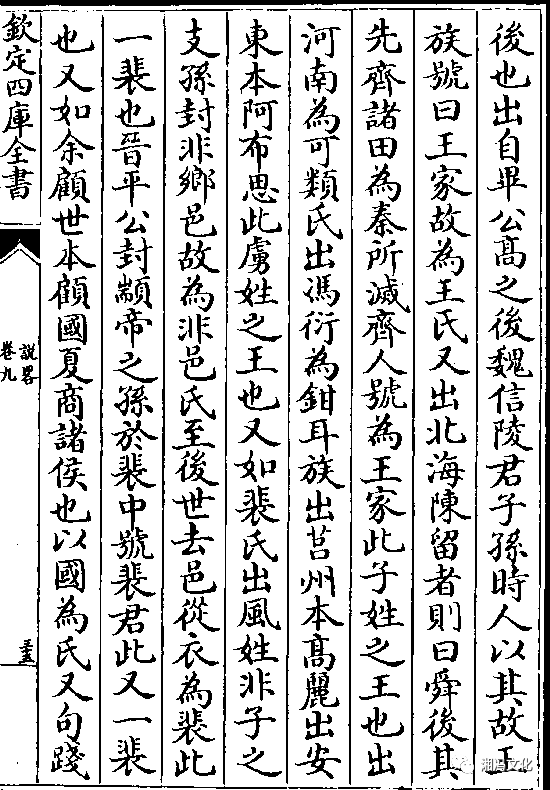 後也出自畢公髙之後魏信陵君子孫時人以其故王
族號曰王家故為王氏又出北海陳留者則曰舜後其
先齊諸田為秦所滅齊人號為王家此子姓之王也出
河南為可類氏出馮衍為鉗耳族出莒州本髙麗出安
東本阿布思此虜姓之王也又如裴氏出風姓非子之
支孫封非鄉邑故為非邑氏至後世去邑從衣為裴此
一裴也晉平公封顓帝之孫於裴中號裴君此又一裴
也又如余顧世本顧國夏商諸侯也以國為氏又句踐
欽定四庫全書
說畧
卷九
湘馮文化